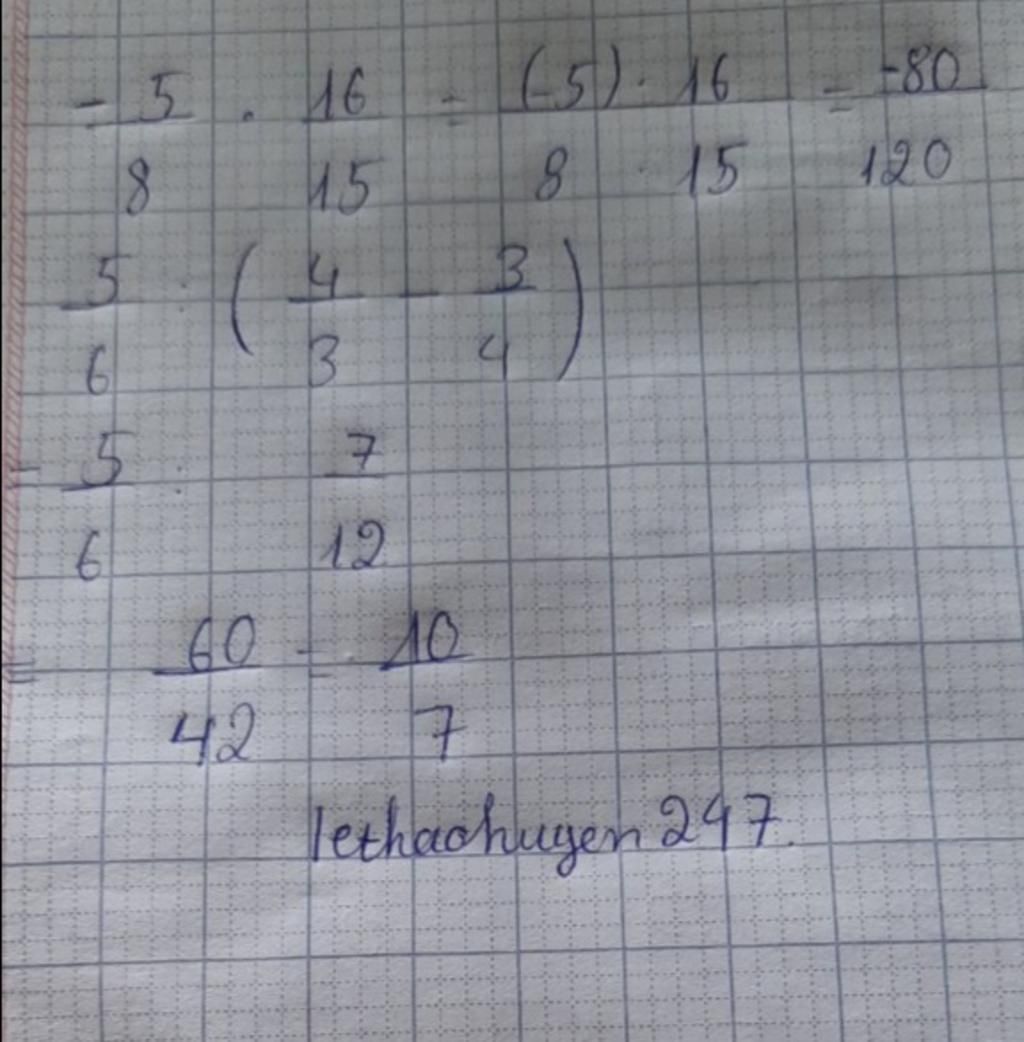 -5/8 . 16/15 = (-5) . 16 / 8 . 15 = -80/120
5/6 : (4/3 - 3/4)
= 5/6 : 7/12
= 60/42 = 10/7
lethaohuyen247.